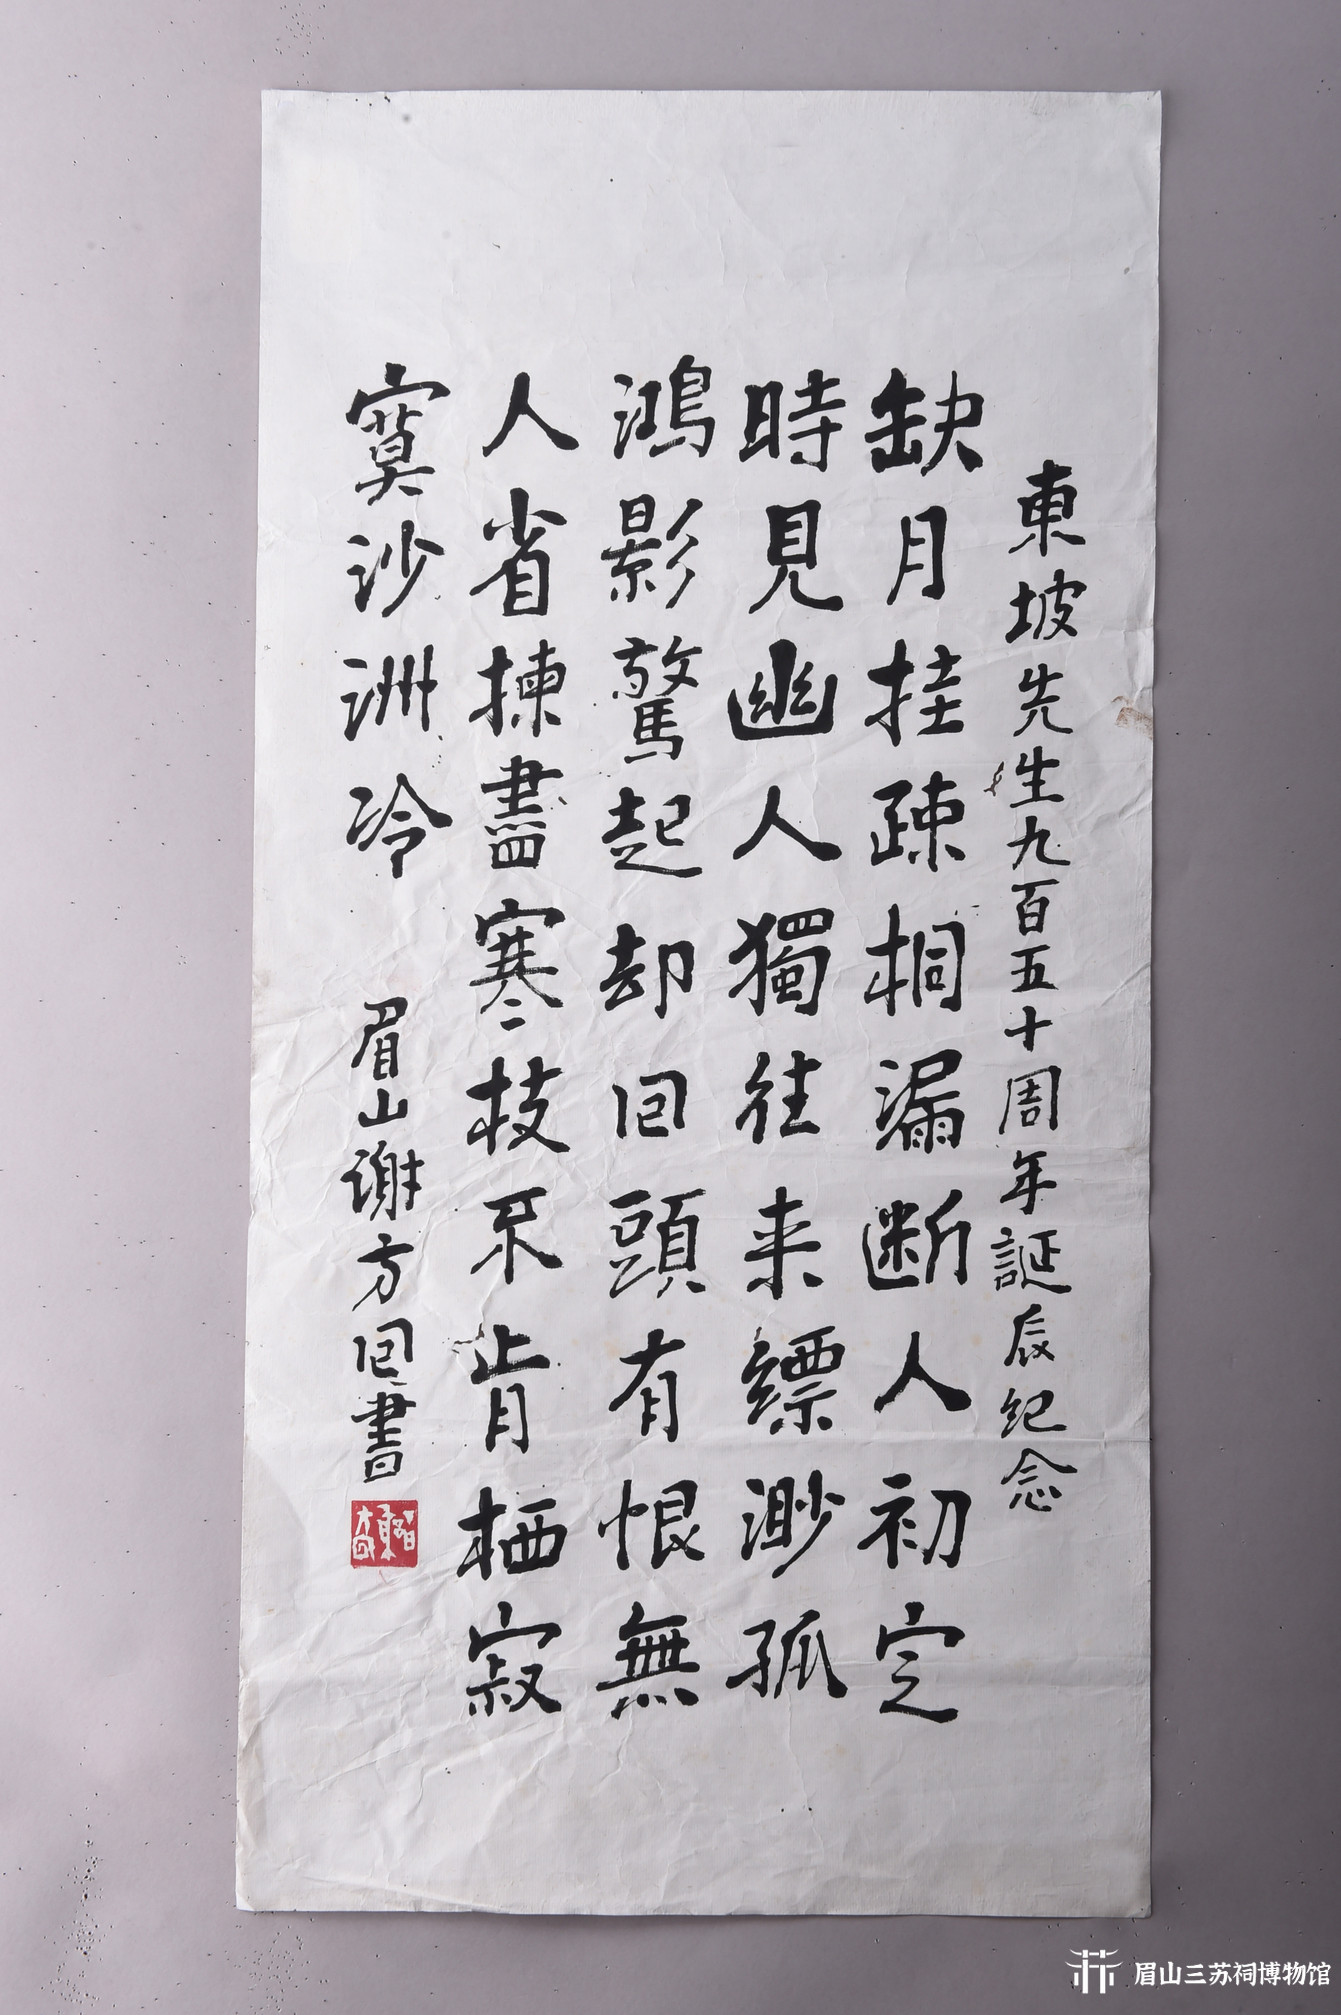 東坡先生九百五十周年誕辰纪念
缺月挂疎桐漏断人初定
時見幽人獨往来缥渺孤
鴻影驚起却回頭有恨無
人省揀盡寒枝不肯栖寂
寞沙洲冷
眉山谢方回書
眉山三苏祠博物馆